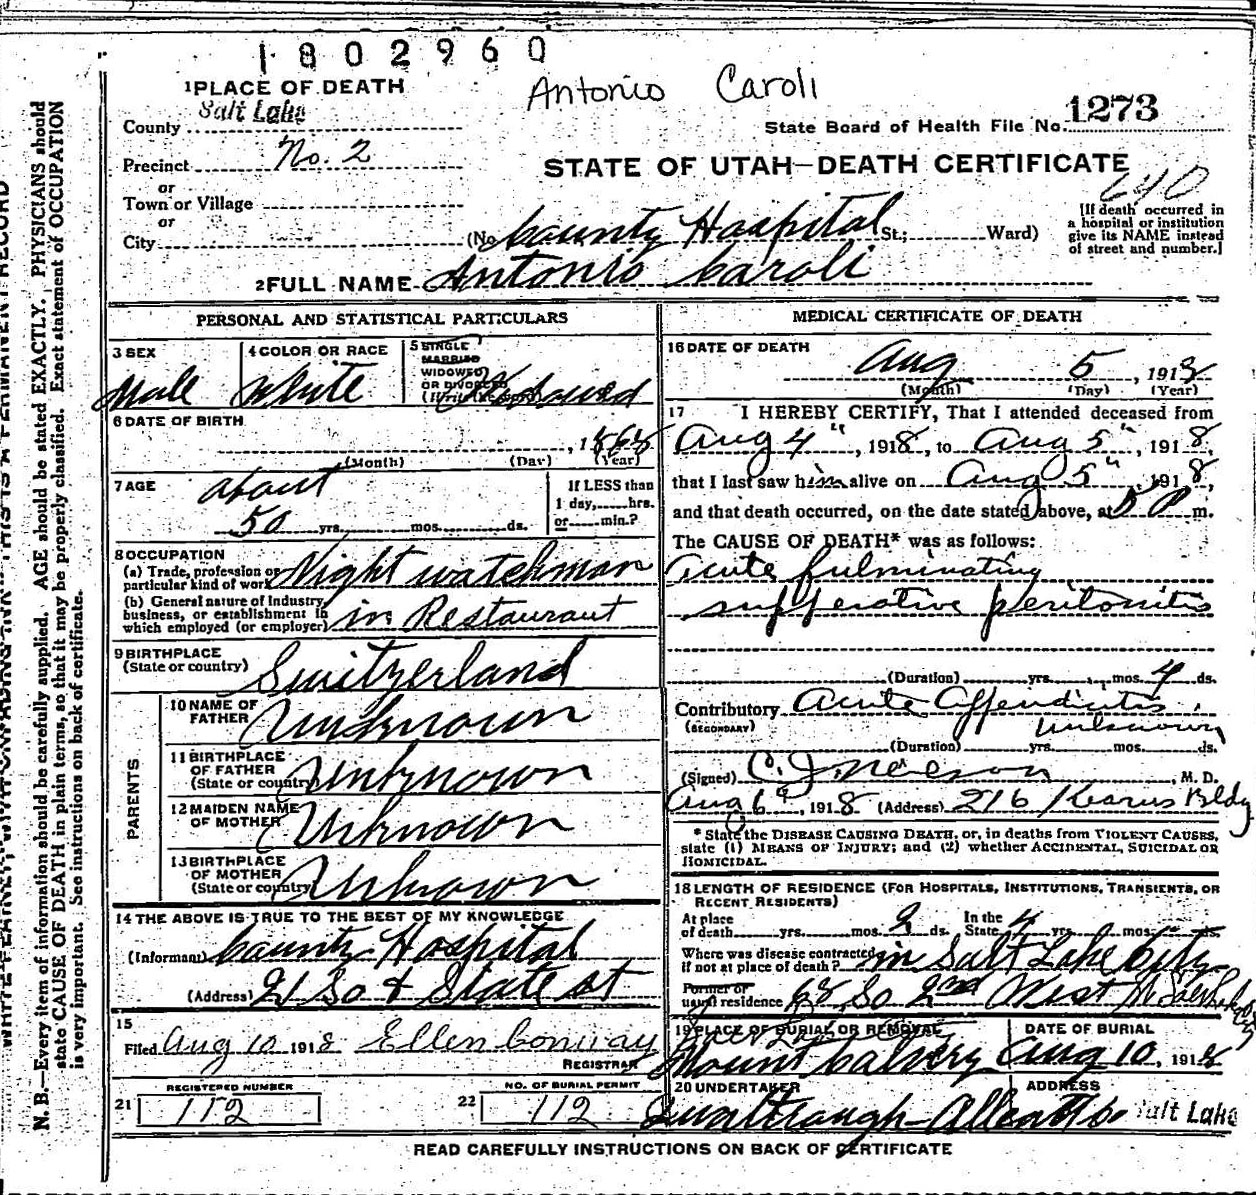 1802960
Antonio Caroli
1 PLACE OF DEATH
Salt Lake
County
State Board of Health File No. 1273
Precinct No. 2
STATE OF UTAH—DEATH CERTIFICATE
or
Town or Village
or
City
640
(No. County Hospital St.; Ward)
[If death occurred in
a hospital or institution
give its NAME instead
of street and number.]
2 FULL NAME Antonio Caroli
PERSONAL AND STATISTICAL PARTICULARS
3 SEX
Male
4 COLOR OR RACE
White
5 SINGLE
MARRIED
WIDOWED
OR DIVORCED
Widowed
6 DATE OF BIRTH
, 1868
(Month) (Day) (Year)
7 AGE about
50 yrs. mos. ds.
If LESS than
1 day, hrs.
or min.?
8 OCCUPATION
(a) Trade, profession or
particular kind of work Night watchman
(b) General nature of Industry,
business, or establishment in
which employed (or employer) in Restaurant
9 BIRTHPLACE
(State or country) Switzerland
PARENTS
10 NAME OF
FATHER Unknown
11 BIRTHPLACE
OF FATHER
(State or country) Unknown
12 MAIDEN NAME
OF MOTHER Unknown
13 BIRTHPLACE
OF MOTHER
(State or country) Unknown
14 THE ABOVE IS TRUE TO THE BEST OF MY KNOWLEDGE
(Informant) County Hospital
(Address) 21 So & State st
15
Filed Aug 10 1918 Ellen Conway
REGISTRAR
REGISTERED NUMBER
21 112
NO. OF BURIAL PERMIT
22 112
MEDICAL CERTIFICATE OF DEATH
16 DATE OF DEATH
Aug 5, 1918
(Month) (Day) (Year)
17 I HEREBY CERTIFY, That I attended deceased from
Aug 4", 1918, to Aug 5", 1918,
that I last saw him alive on Aug 5", 1918,
and that death occurred, on the date stated above, at m.
The CAUSE OF DEATH* was as follows:
acute fulminating
supperative peritonitis
(Duration) yrs. mos. 4 ds.
Contributory acute appendicitis
(SECONDARY) unknown
(Duration) yrs. mos. ds.
(Signed) M. D.
Aug 6", 1918 (Address) 216 Kearns Bldg
* State the DISEASE CAUSING DEATH, or, in deaths from VIOLENT CAUSES,
state (1) MEANS OF INJURY; and (2) whether ACCIDENTAL, SUICIDAL OR
HOMICIDAL.
18 LENGTH OF RESIDENCE (FOR HOSPITALS, INSTITUTIONS, TRANSIENTS, OR
RECENT RESIDENTS)
At place
of death yrs. mos. 2 ds. In the
State 4 yrs. mos. ds.
Where was disease contracted,
if not at place of death? in Salt Lake City
Former or
usual residence 68 So 2nd West
19 PLACE OF BURIAL OR REMOVAL
Mount Calvery
DATE OF BURIAL
Aug 10, 1918
20 UNDERTAKER
ADDRESS
Salt Lake
READ CAREFULLY INSTRUCTIONS ON BACK OF CERTIFICATE
N. B.—Every item of information should be carefully supplied. AGE should be stated EXACTLY. PHYSICIANS should
state CAUSE OF DEATH in plain terms, so that it may be properly classified. Exact statement of OCCUPATION
is very important. See instructions on back of certificate.